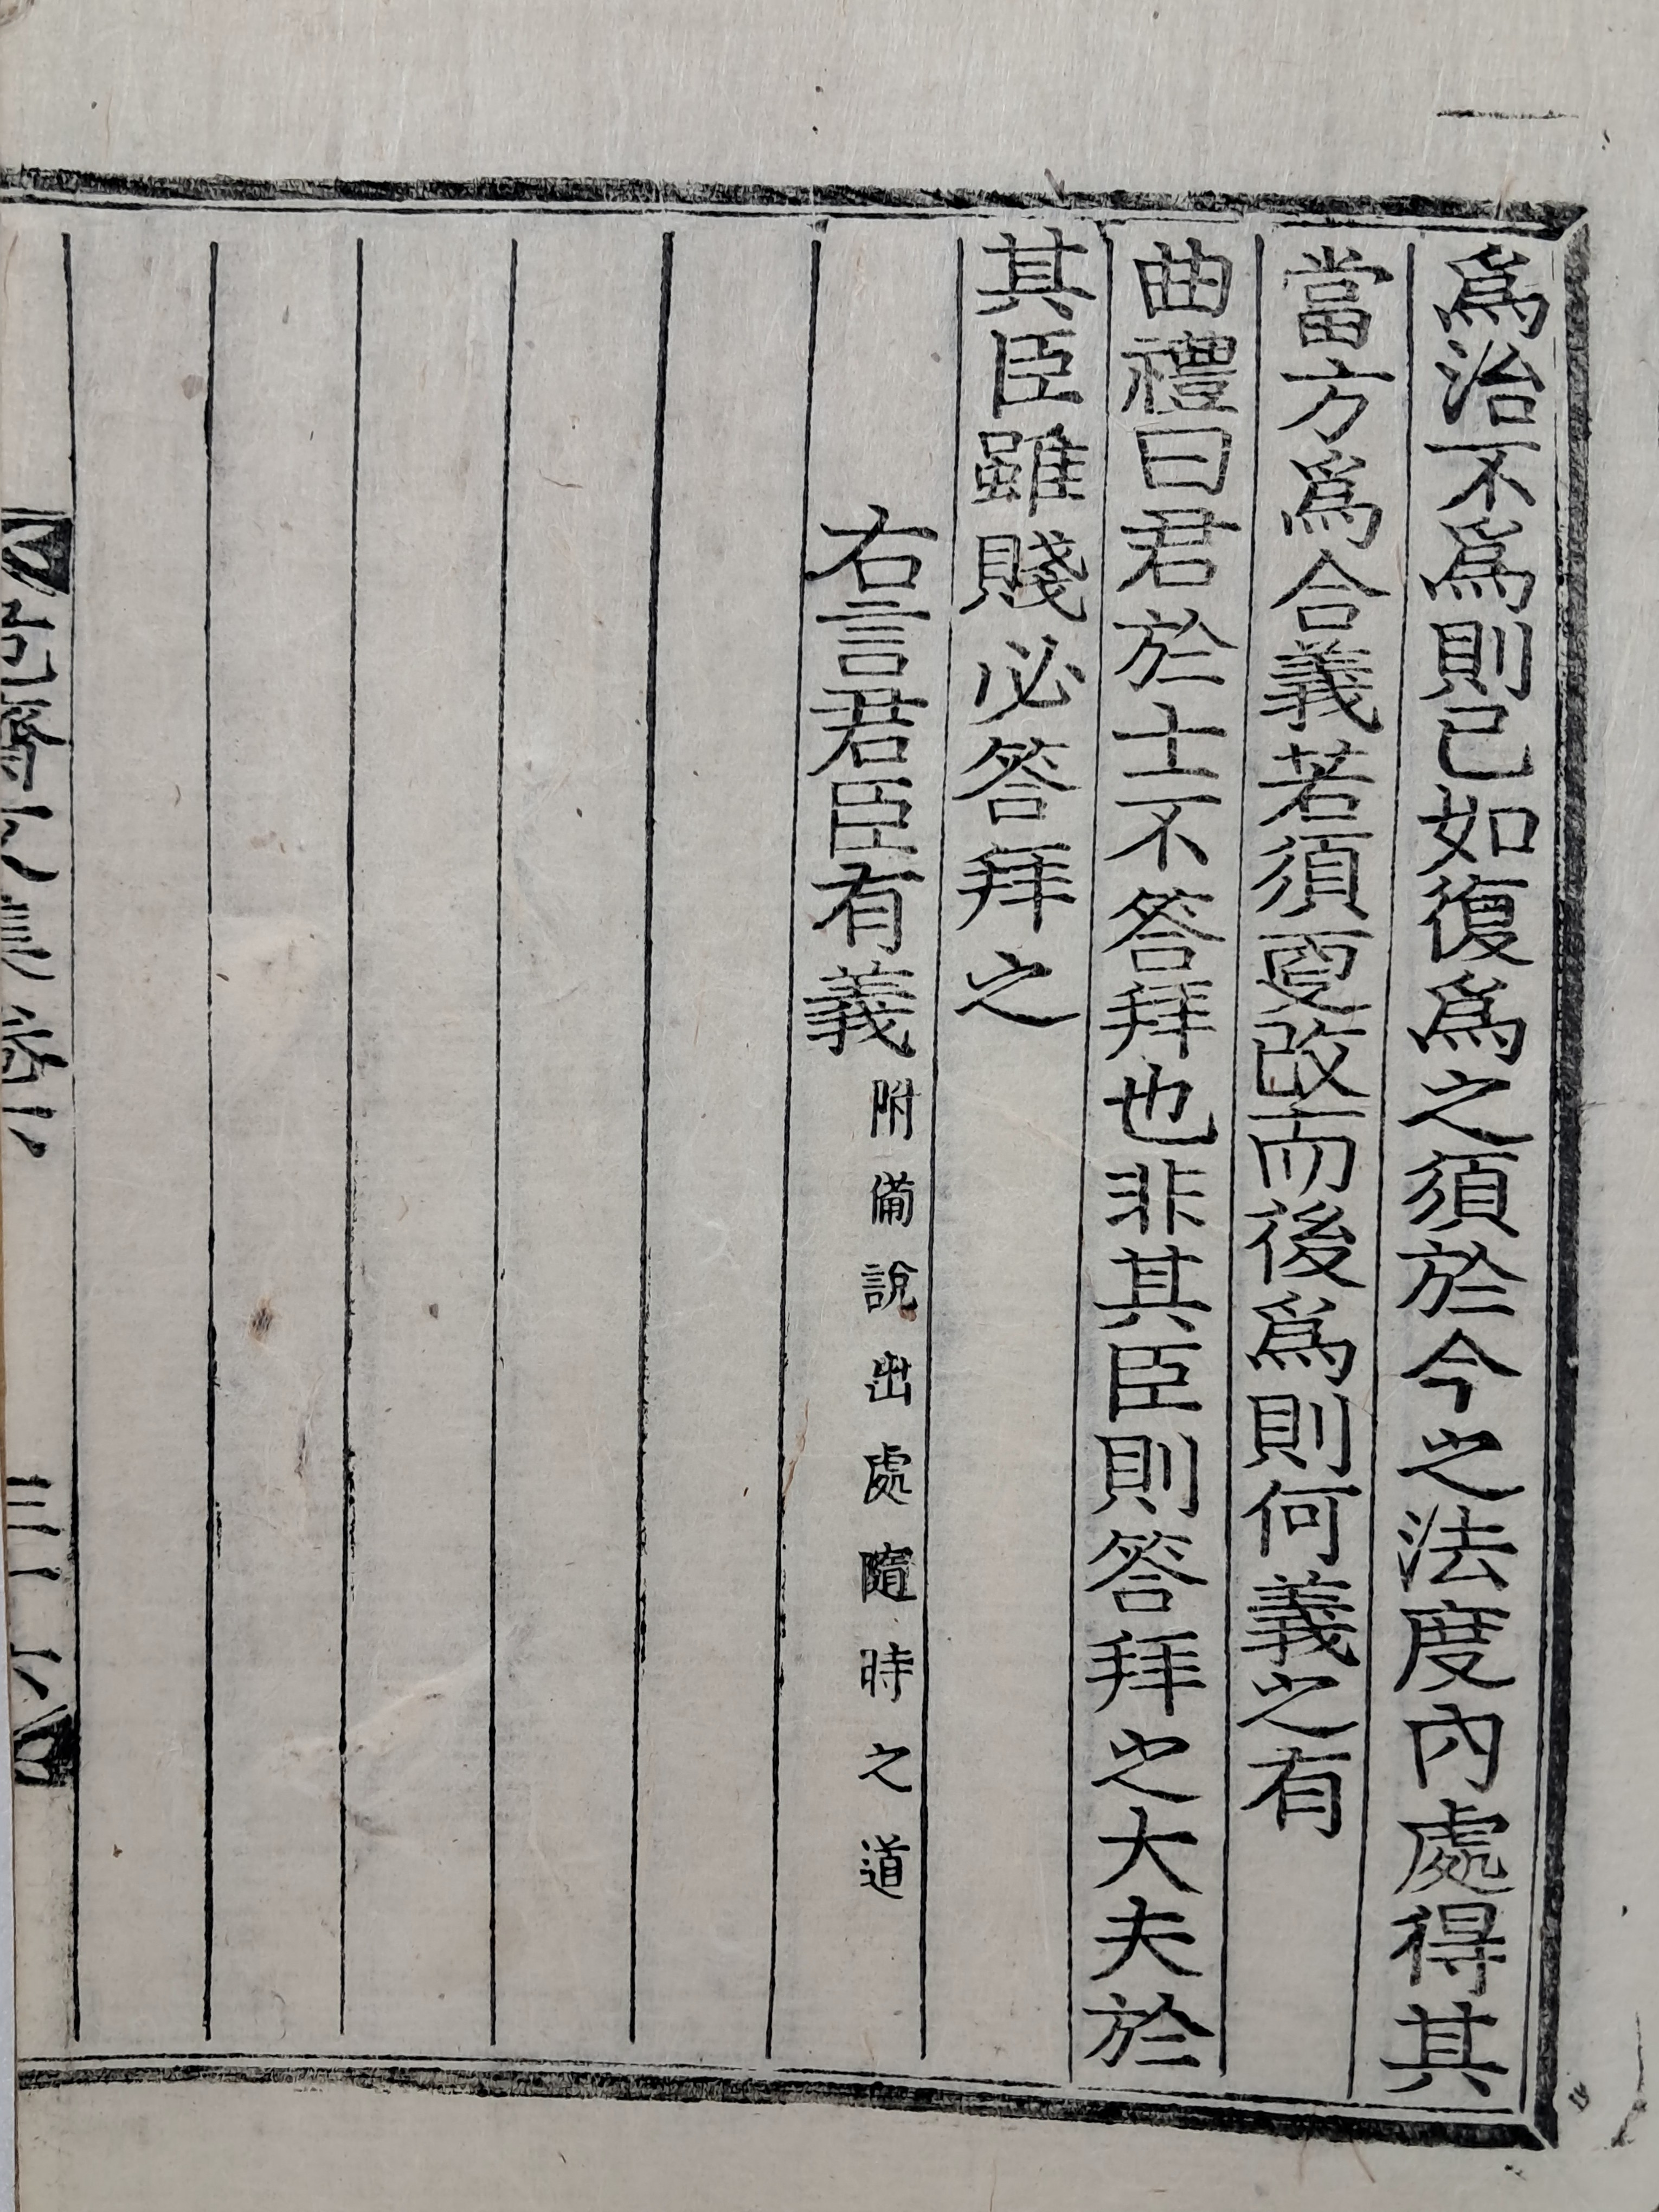 爲治不爲則已如復爲之須於今之法度內處得其
當方爲合義若須更改而後爲則何義之有
曲禮曰君於士不答拜也非其臣則答拜之大夫於
其臣雖賤必答拜之
右言君臣有義附備說出處隨時之道